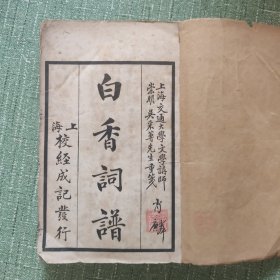 上海交通大學文學講師
崇明吳東菁先生重箋
肖麟
白香詞譜
上海校經成記發行